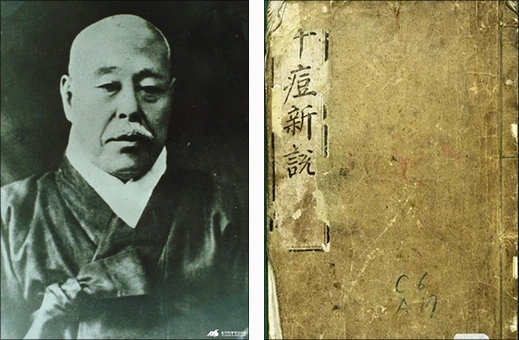 牛痘新說
C6
A17